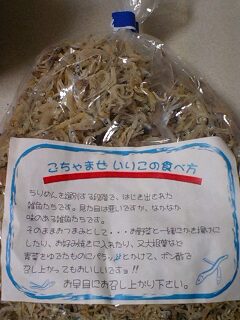 こちゃませ いりこの食べ方
ちりめんを選別する段階で、はじき出された
雑魚たちです。見た目は悪いですが、なかなか
味のある雑魚たちです。
そのままおつまみとして・・・お野菜と一緒にかき揚げに
したり、お好み焼きに入れたり、又大根葉など
青菜をゆでたものにパラッとかけて、ポン酢で
召し上がってもおいしいですョ!!
お早目にお召し上がり下さい。